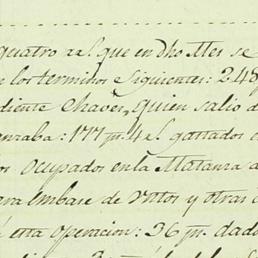 quatro rr.l que en dho Mes se
n los terminos siguientes: 248
diente Chaves, quien salio d
enzaba: 177 p.s 4 r.l gastados e
os ocupados en la Matanza d
ara embase de Untos y otras c
a esta operacion: 36 p.s dado